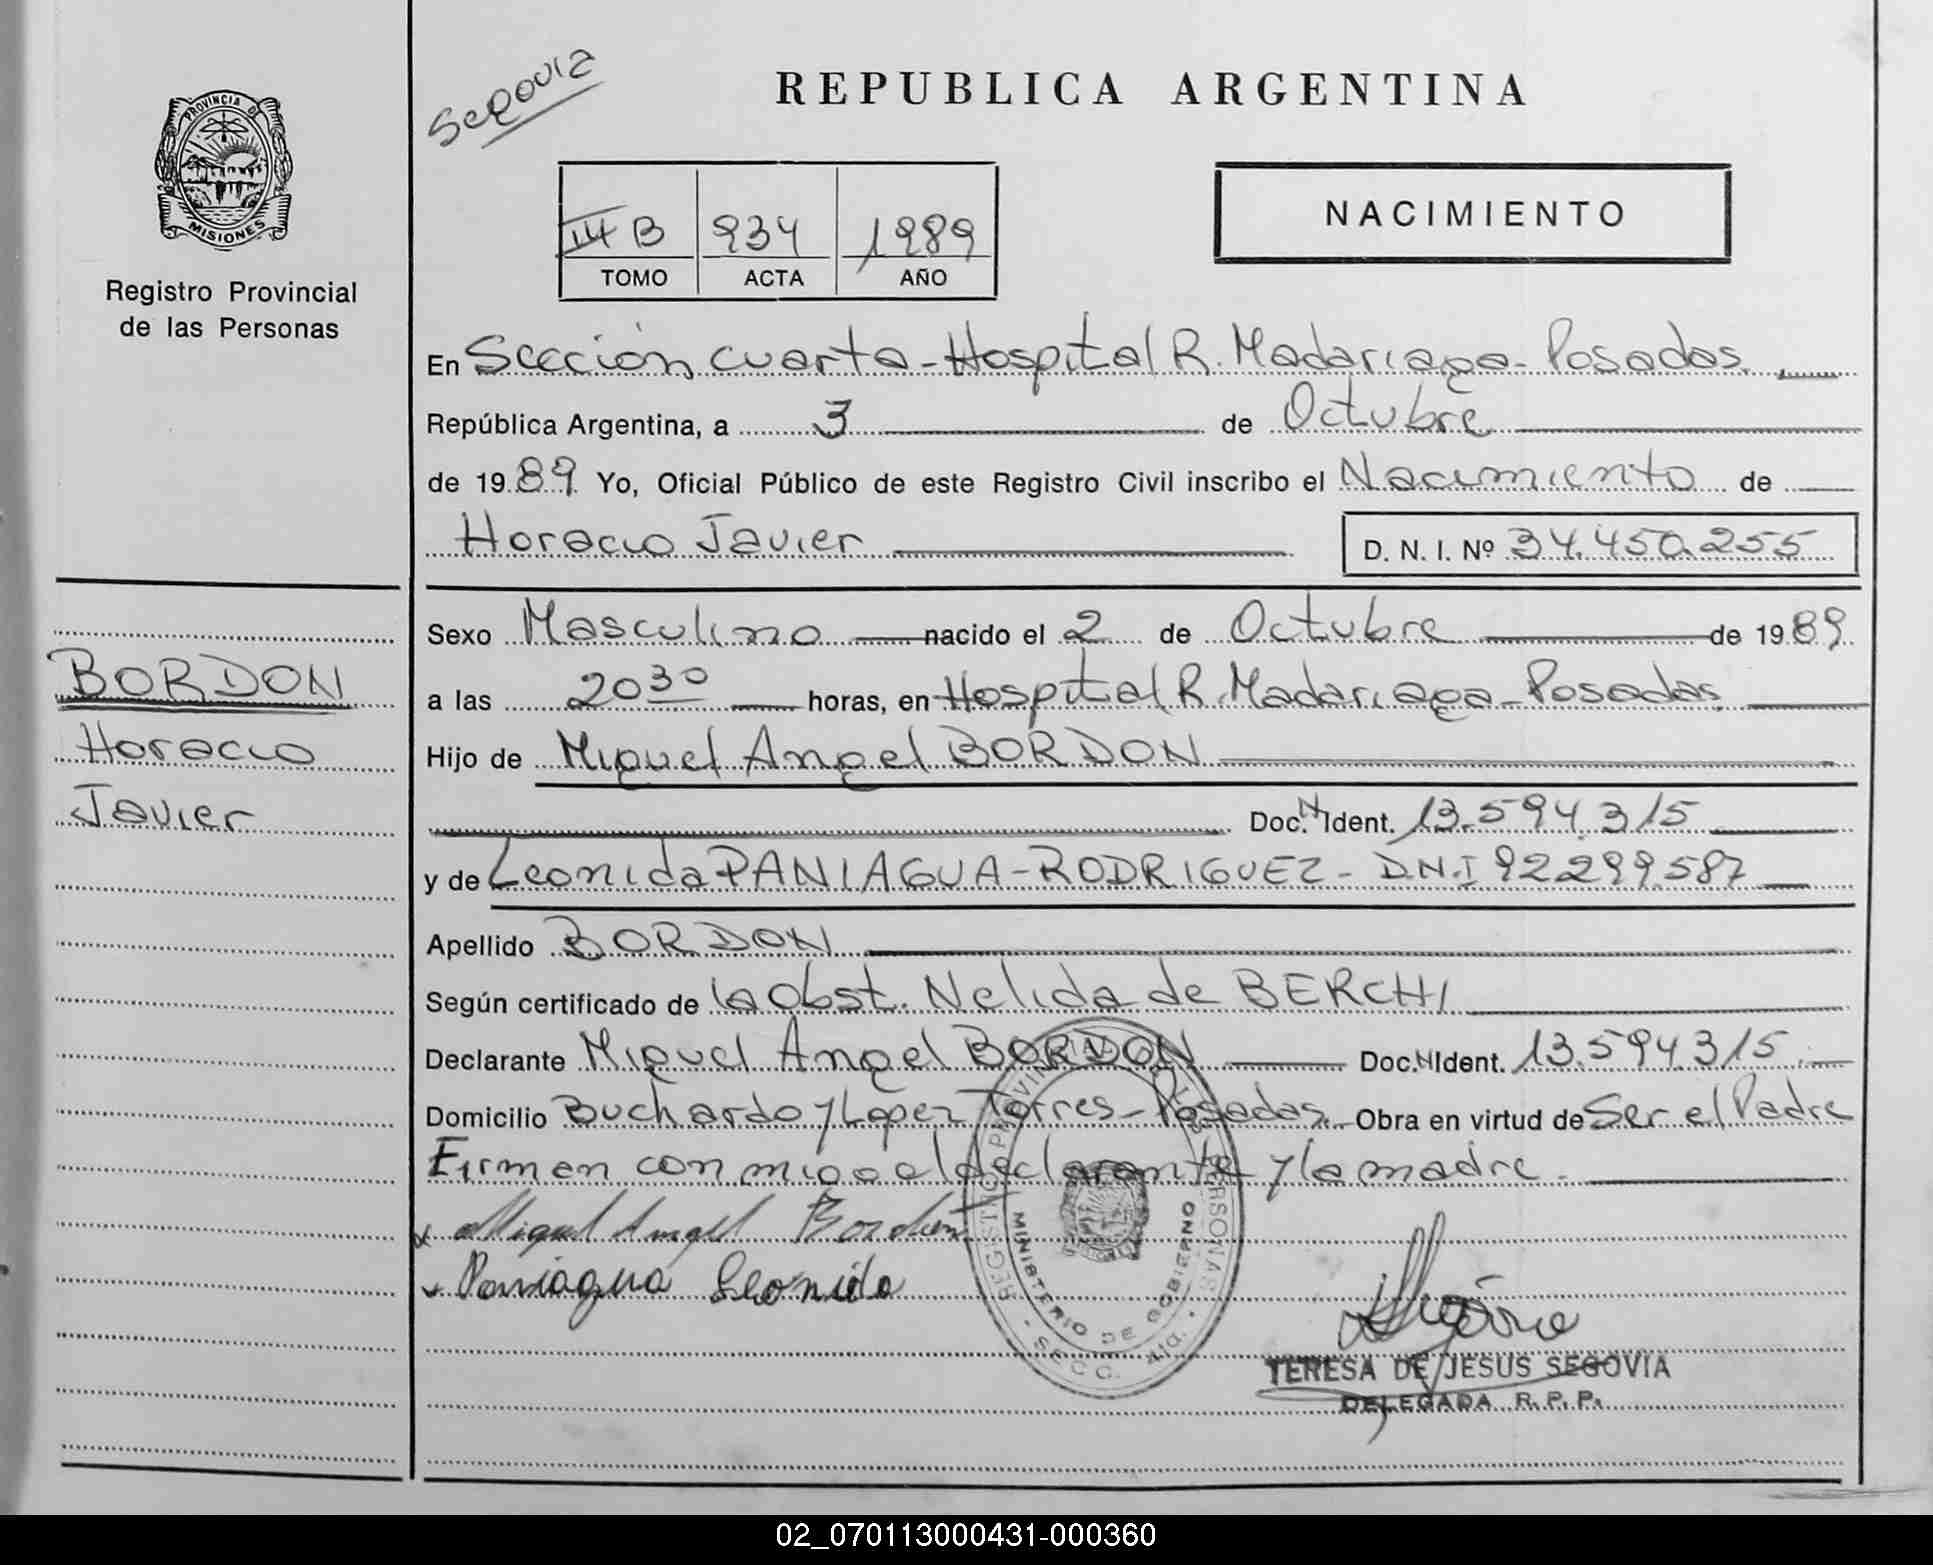 Segovia
REPUBLICA ARGENTINA
PROVINCIA DE
MISIONES
Registro Provincial
de las Personas
B 934 1989
TOMO ACTA AÑO
NACIMIENTO
En Sección cuarta - Hospital R. Madariaga - Posadas.
República Argentina, a 3 de Octubre
de 1989 Yo, Oficial Público de este Registro Civil inscribo el Nacimiento de
Horacio Javier D. N. I. Nº 34.450.255
Sexo Masculino nacido el 2 de Octubre de 1989
a las 20 30 horas, en Hospital R. Madariaga - Posadas.
Hijo de Miguel Angel BORDON
Doc. N Ident. 13.594.315
y de Leonida PANIAGUA - RODRIGUEZ - D.N.I 92299587
Apellido BORDON
Según certificado de la Obst. Nelida de BERCHI
Declarante Miguel Angel BORDON Doc. N Ident. 13.594.315
Domicilio Buchardo y López Torres - Posadas. Obra en virtud de Ser el Padre
Firman conmigo el declarante y la madre.
x Miguel Angel Bordon
x Paniagua Leonida
BORDON
Horacio
Javier
MINISTERIO DE GOBIERNO
TERESA DE JESUS SEGOVIA
DELEGADA R. P. P.
02_070113000431-000360